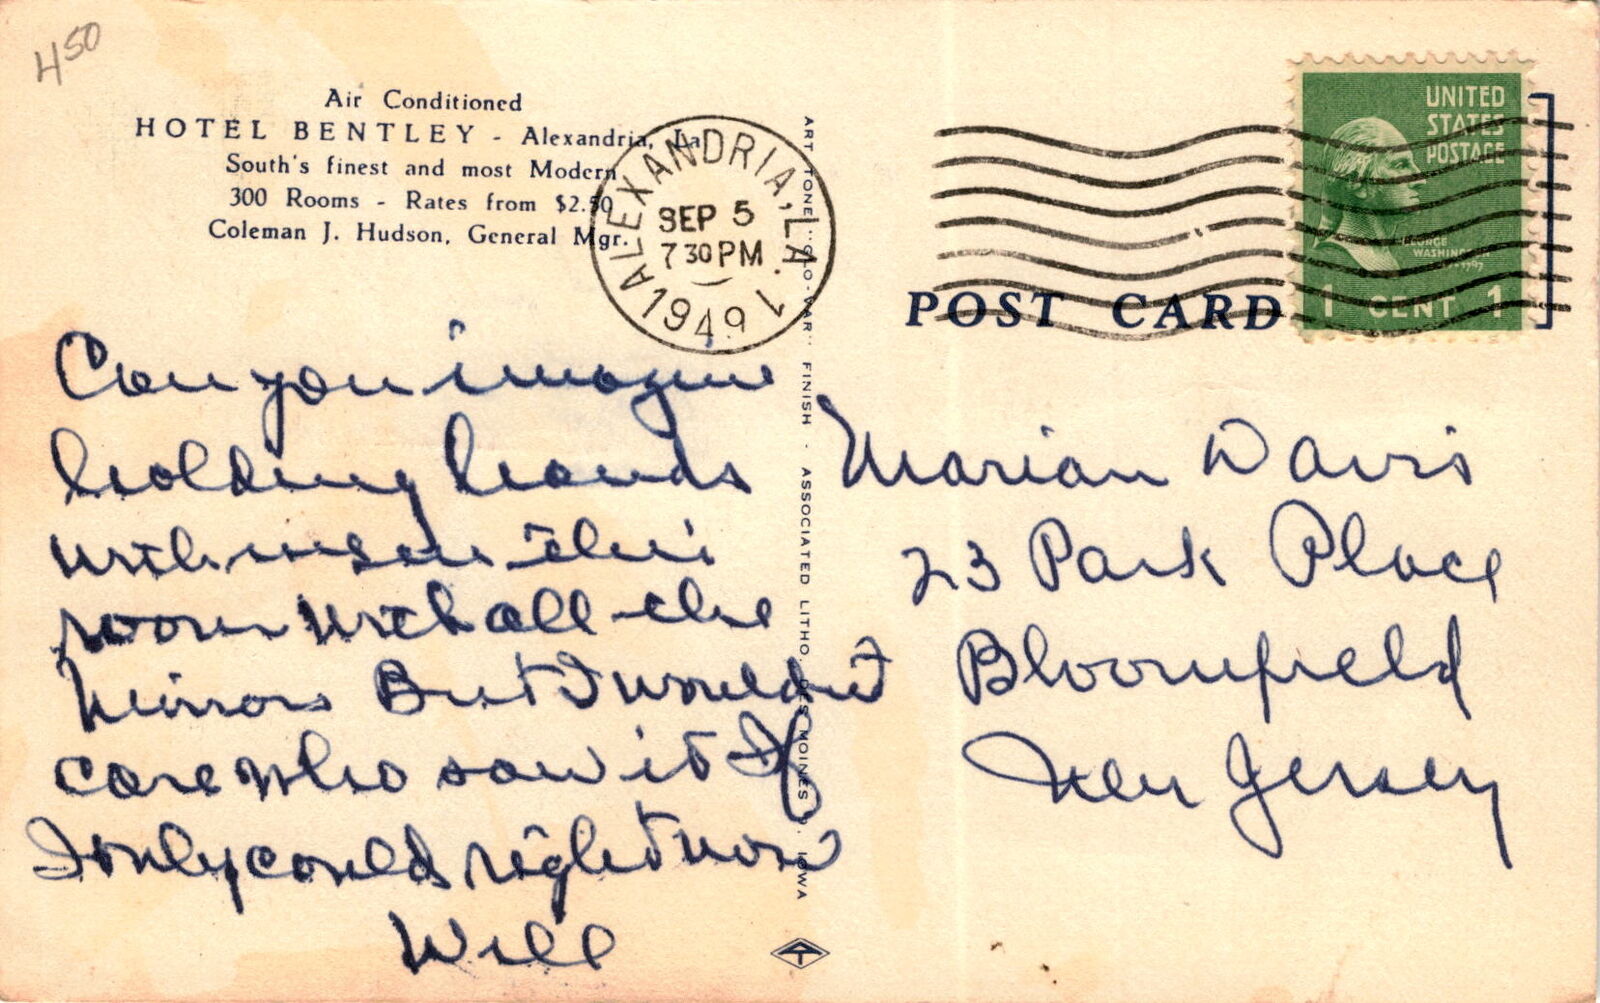 4 50
Air Conditioned
HOTEL BENTLEY - Alexandria, La.
South's finest and most Modern
300 Rooms - Rates from $2.50
Coleman J. Hudson, General Mgr.
ALEXANDRIA, LA.
SEP 5
7 30 PM
1949
1
UNITED
STATES
POSTAGE
GEORGE
WASHINGTON
1 CENT 1
POST CARD
ART TONE "GLO-VAR" FINISH - ASSOCIATED LITHO. DES MOINES, IOWA
Can you imagine
holding hands
with me in this
room with all the
mirrors But I wouldn't
care who saw it If
I only could right now
Will
Marian Davis
23 Park Place
Bloomfield
New Jersey